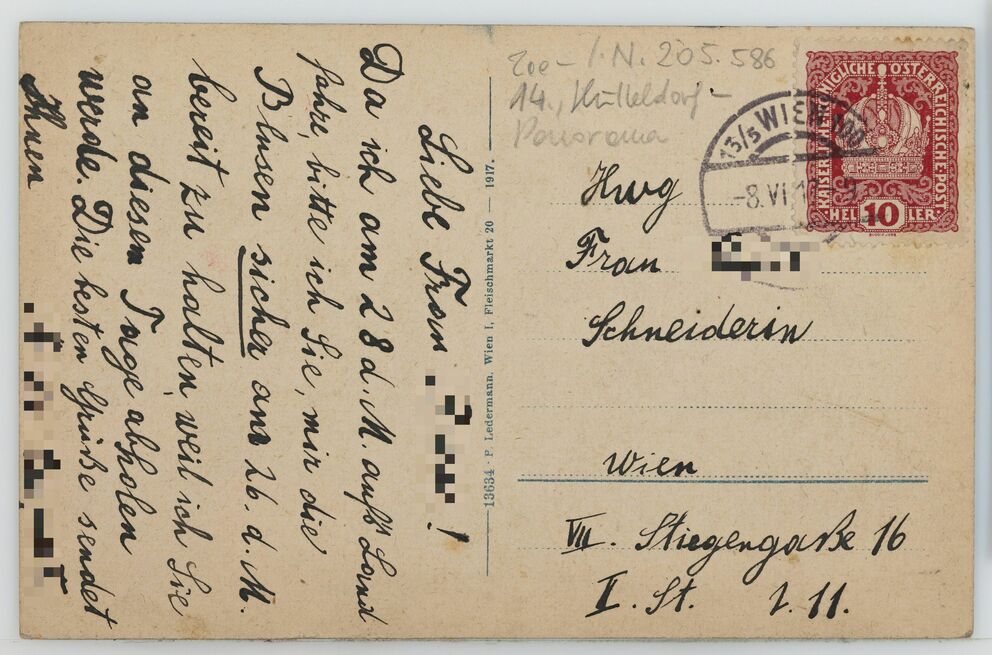 Liebe Frau
!
Da ich am 28 d. M. aufs Land
fahre, bitte ich Sie, mir die
Blusen sicher am 26. d. M.
bereit zu halten, weil ich Sie
an diesem Tage abholen
werde. Die besten Grüße sendet
Ihnen
13634 P. Ledermann, Wien I, Fleischmarkt 20 — 1917.
I.N. 205.586
14., Hütteldorf –
Panorama
13/5 WIEN 100
-8.VI.1
KAISERLICHE KÖNIGLICHE ÖSTERREICHISCHE POST
HELLER
10
Frau
Schneiderin
Wien
VII. Stiegengaße 16
I. St. t. 11.